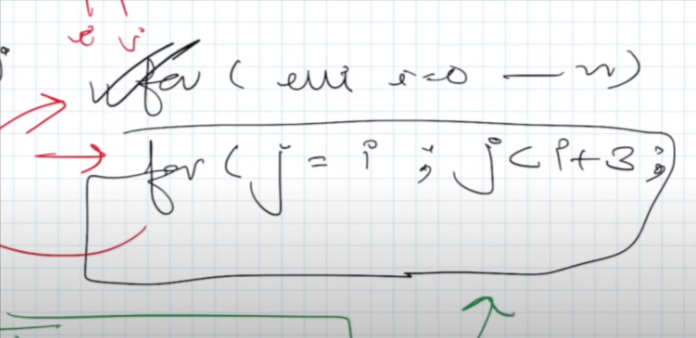 i j
for ( int i=0 — n)
for ( j = i ; j < i+3 ;